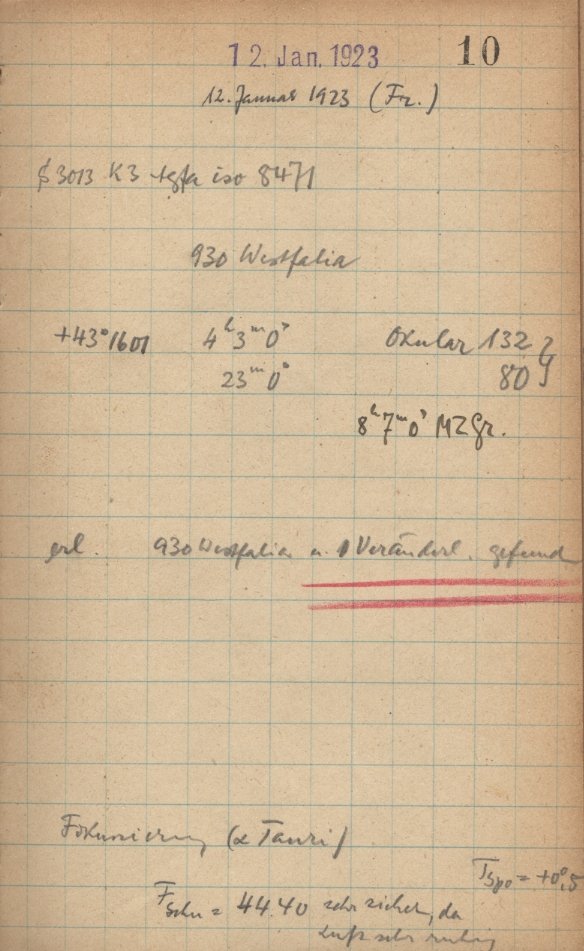 12. Jan. 1923 10
12. Januar 1923 (Fr.)
3013 K3 iso 8471
930 Westfalia
+43°1601 4ʰ3ᵐ0ˢ Okular 132
23ᵐ0ˢ 80
8ʰ7ᵐ0ˢ MZGr.
erl. 930 Westfalia u. 1 Veränderl. gefund
Fokussierung (α Tauri)
= +0°,5
= 44.40 sehr sicher, da
Luft sehr ruhig